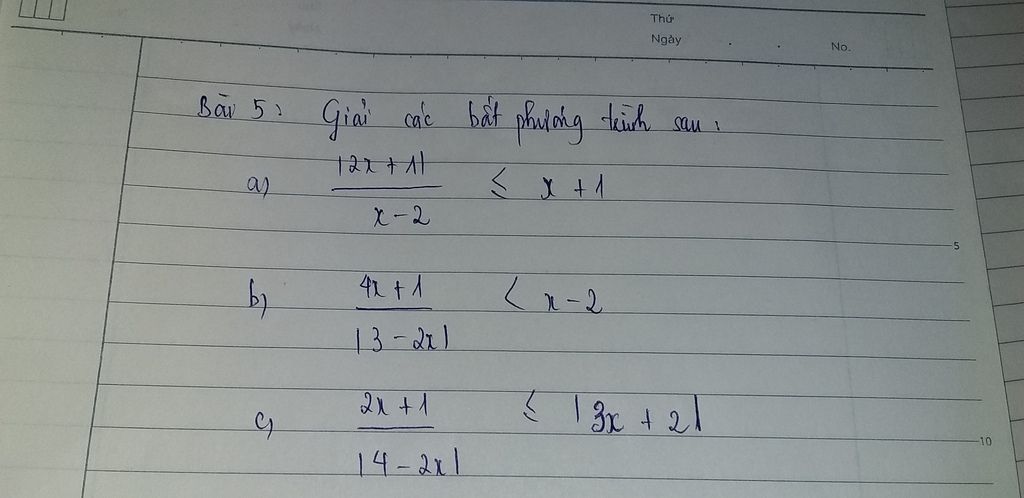 Thứ
Ngày . . No.
Bài 5: Giải các bất phương trình sau:
a) |2x + 1| / x - 2 ≤ x + 1
5
b) 4x + 1 / |3 - 2x| < x - 2
c) 2x + 1 / |4 - 2x| ≤ |3x + 2|
10